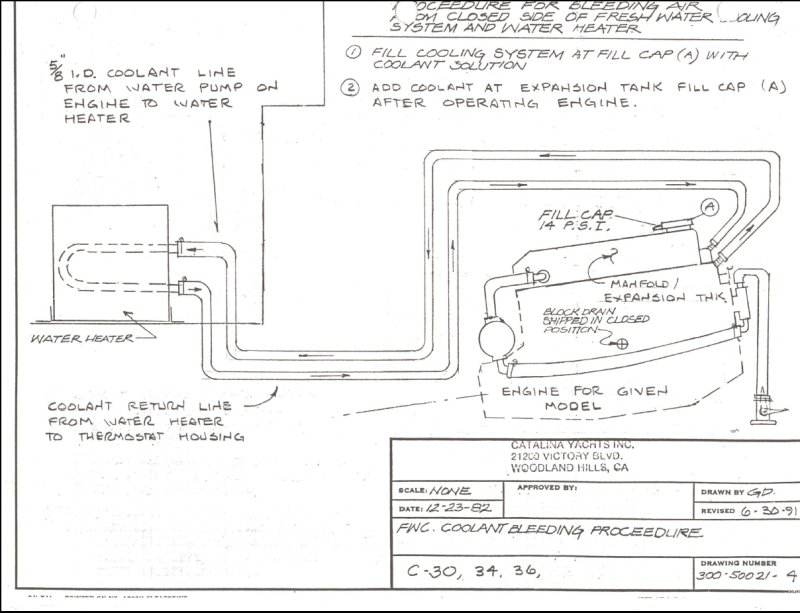 PROCEEDURE FOR BLEEDING AIR
FROM CLOSED SIDE OF FRESH WATER COOLING
SYSTEM AND WATER HEATER
① FILL COOLING SYSTEM AT FILL CAP (A) WITH
COOLANT SOLUTION
② ADD COOLANT AT EXPANSION TANK FILL CAP (A)
AFTER OPERATING ENGINE.
5/8" I.D. COOLANT LINE
FROM WATER PUMP ON
ENGINE TO WATER
HEATER
A
FILL CAP
14 P.S.I.
MANFOLD /
EXPANSION TNK
BLOCK DRAIN
SHIPPED IN CLOSED
POSITION
WATER HEATER
ENGINE FOR GIVEN
MODEL
COOLANT RETURN LINE
FROM WATER HEATER
TO THERMOSTAT HOUSING
CATALINA YACHTS INC.
21200 VICTORY BLVD.
WOODLAND HILLS, CA
SCALE: NONE
APPROVED BY:
DRAWN BY GD.
DATE: 12-23-82
REVISED 6-30-91
FWC. COOLANT BLEEDING PROCEEDURE
C-30, 34, 36,
DRAWING NUMBER
300-50021-4